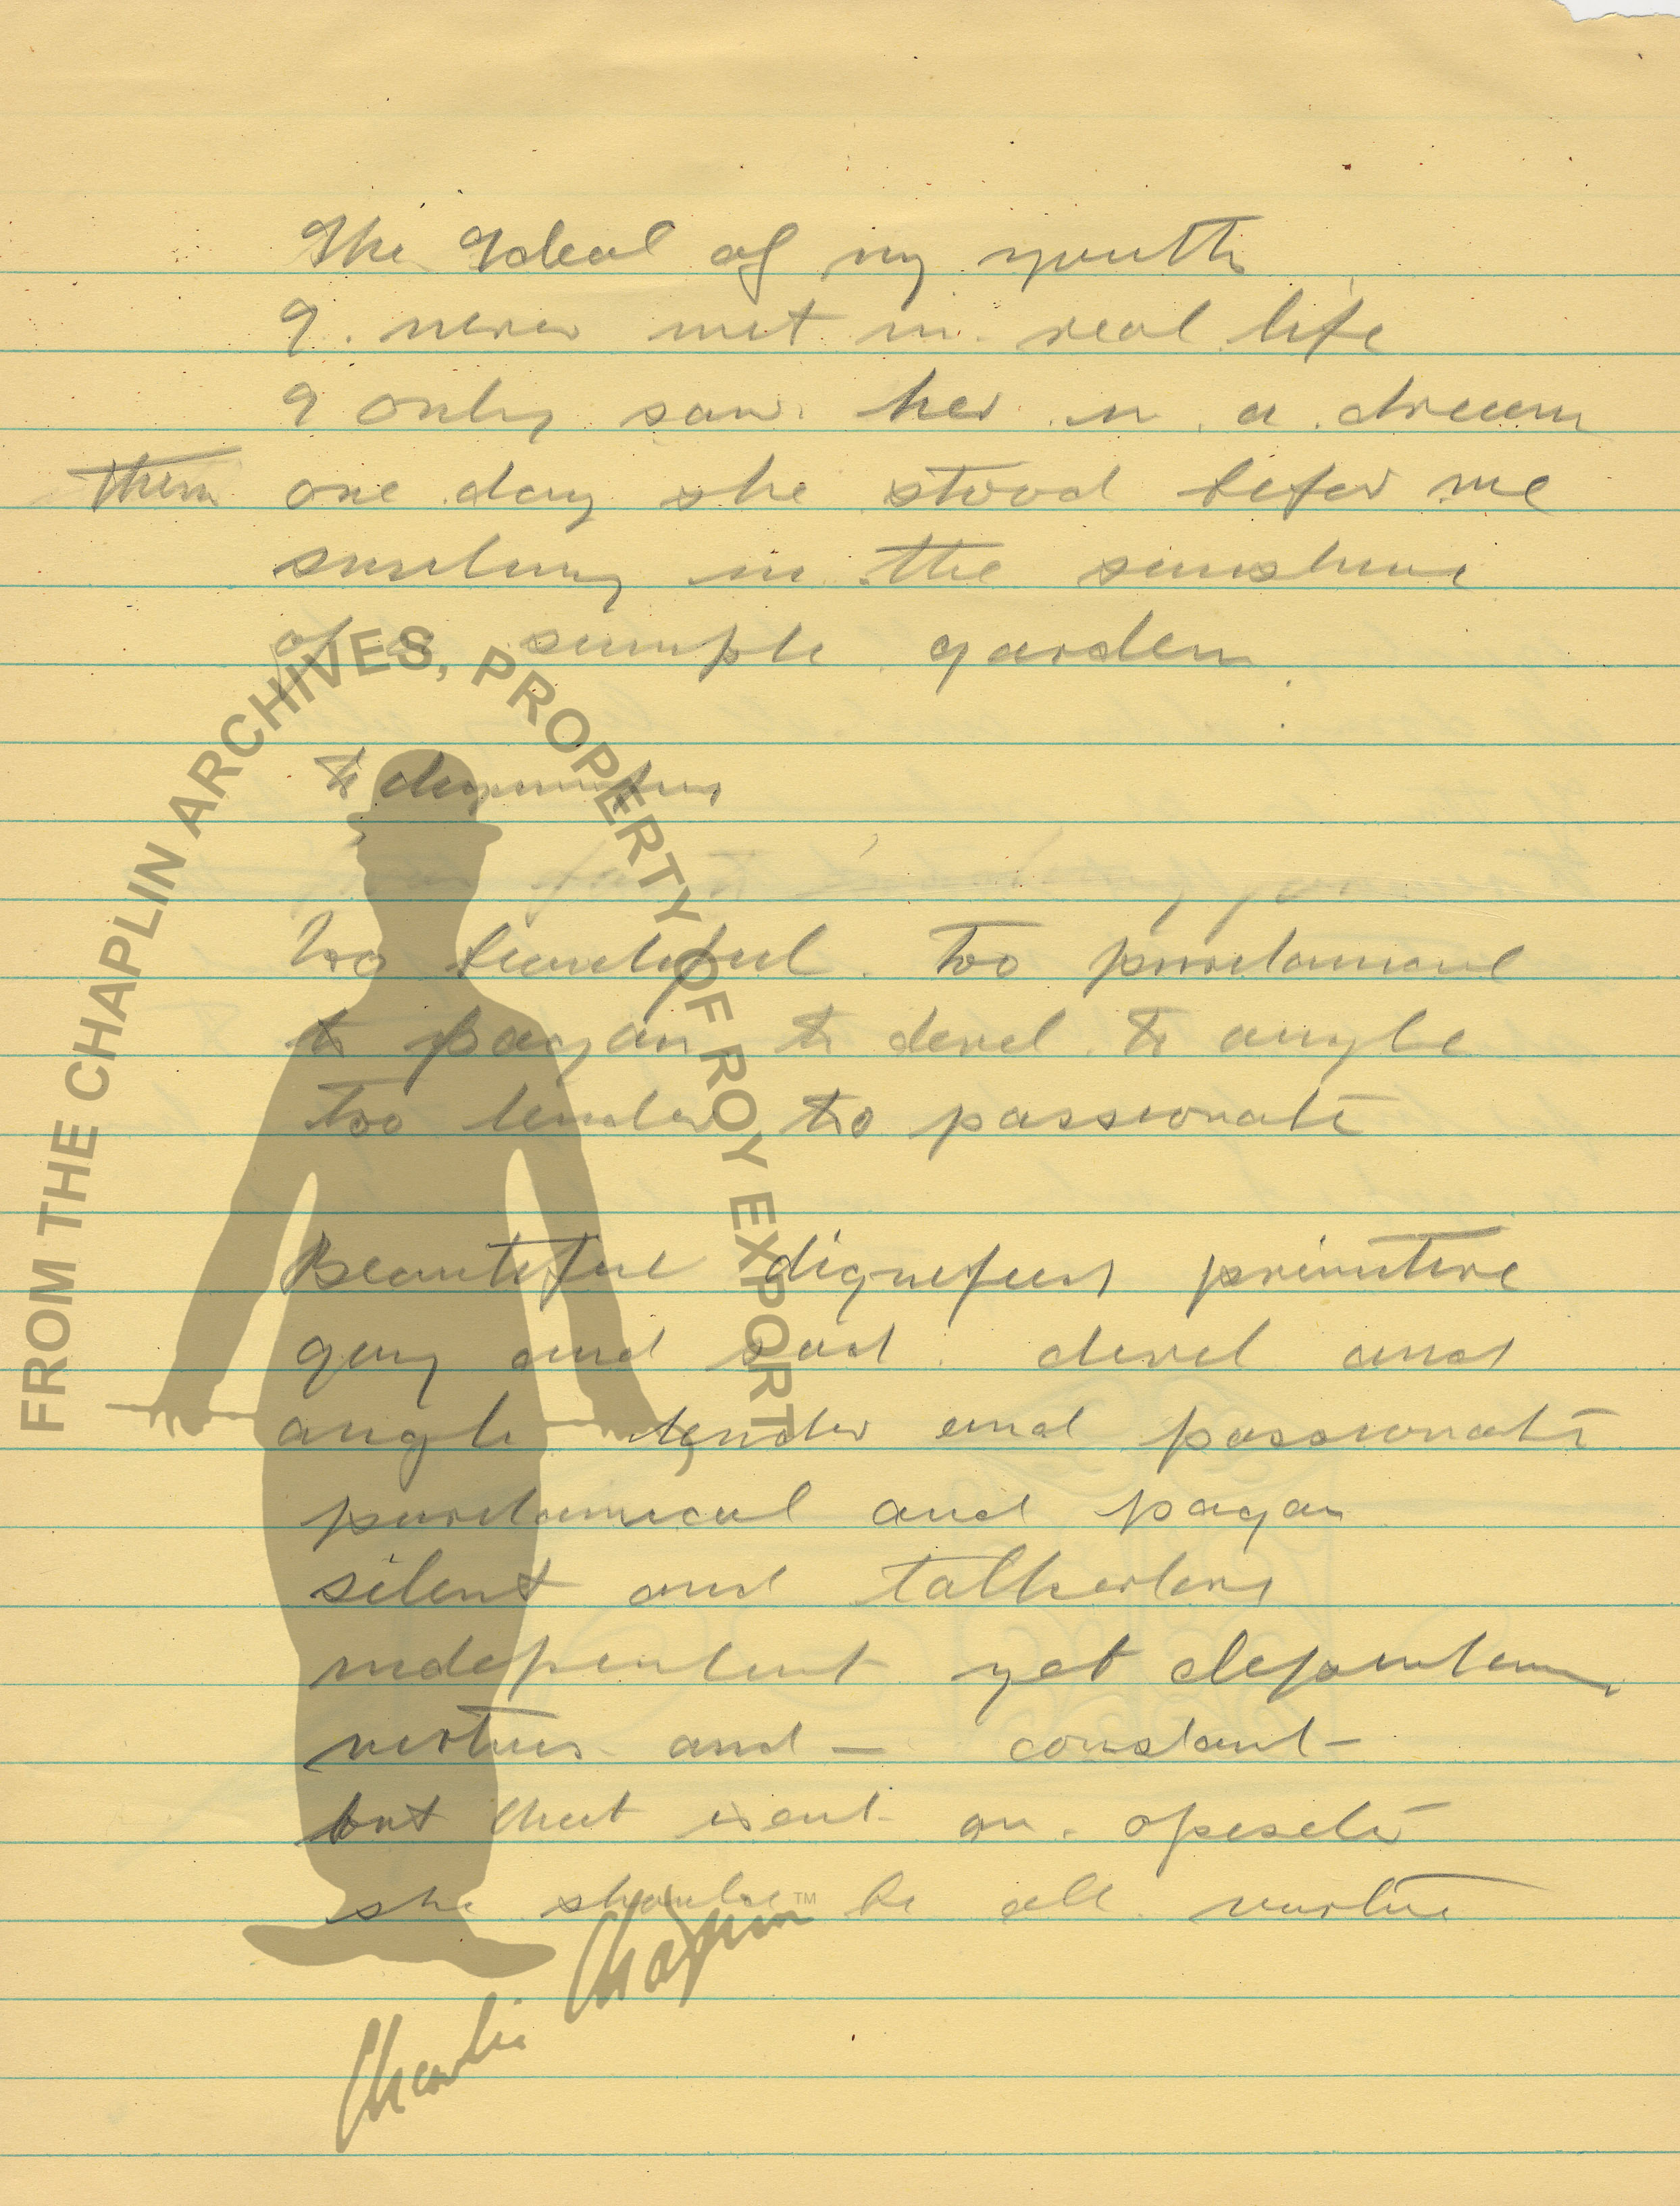 The Ideal of my youth
I never met in real life
I only saw her in a dream
then one day she stood befor me
smiling in the sunshine
of a simple garden
FROM THE CHAPLIN ARCHIVES, PROPERTY OF ROY EXPORT
Too beautiful too
to pagan to devel to angle
Too tender too passionate
Beautiful primitive
gay and sad devel and
angle tender and passionate
puritanical and pagan
silent and talkative
independent yet
and — constant
but that isent an
she should be all virtue
TM
Charlie Chaplin